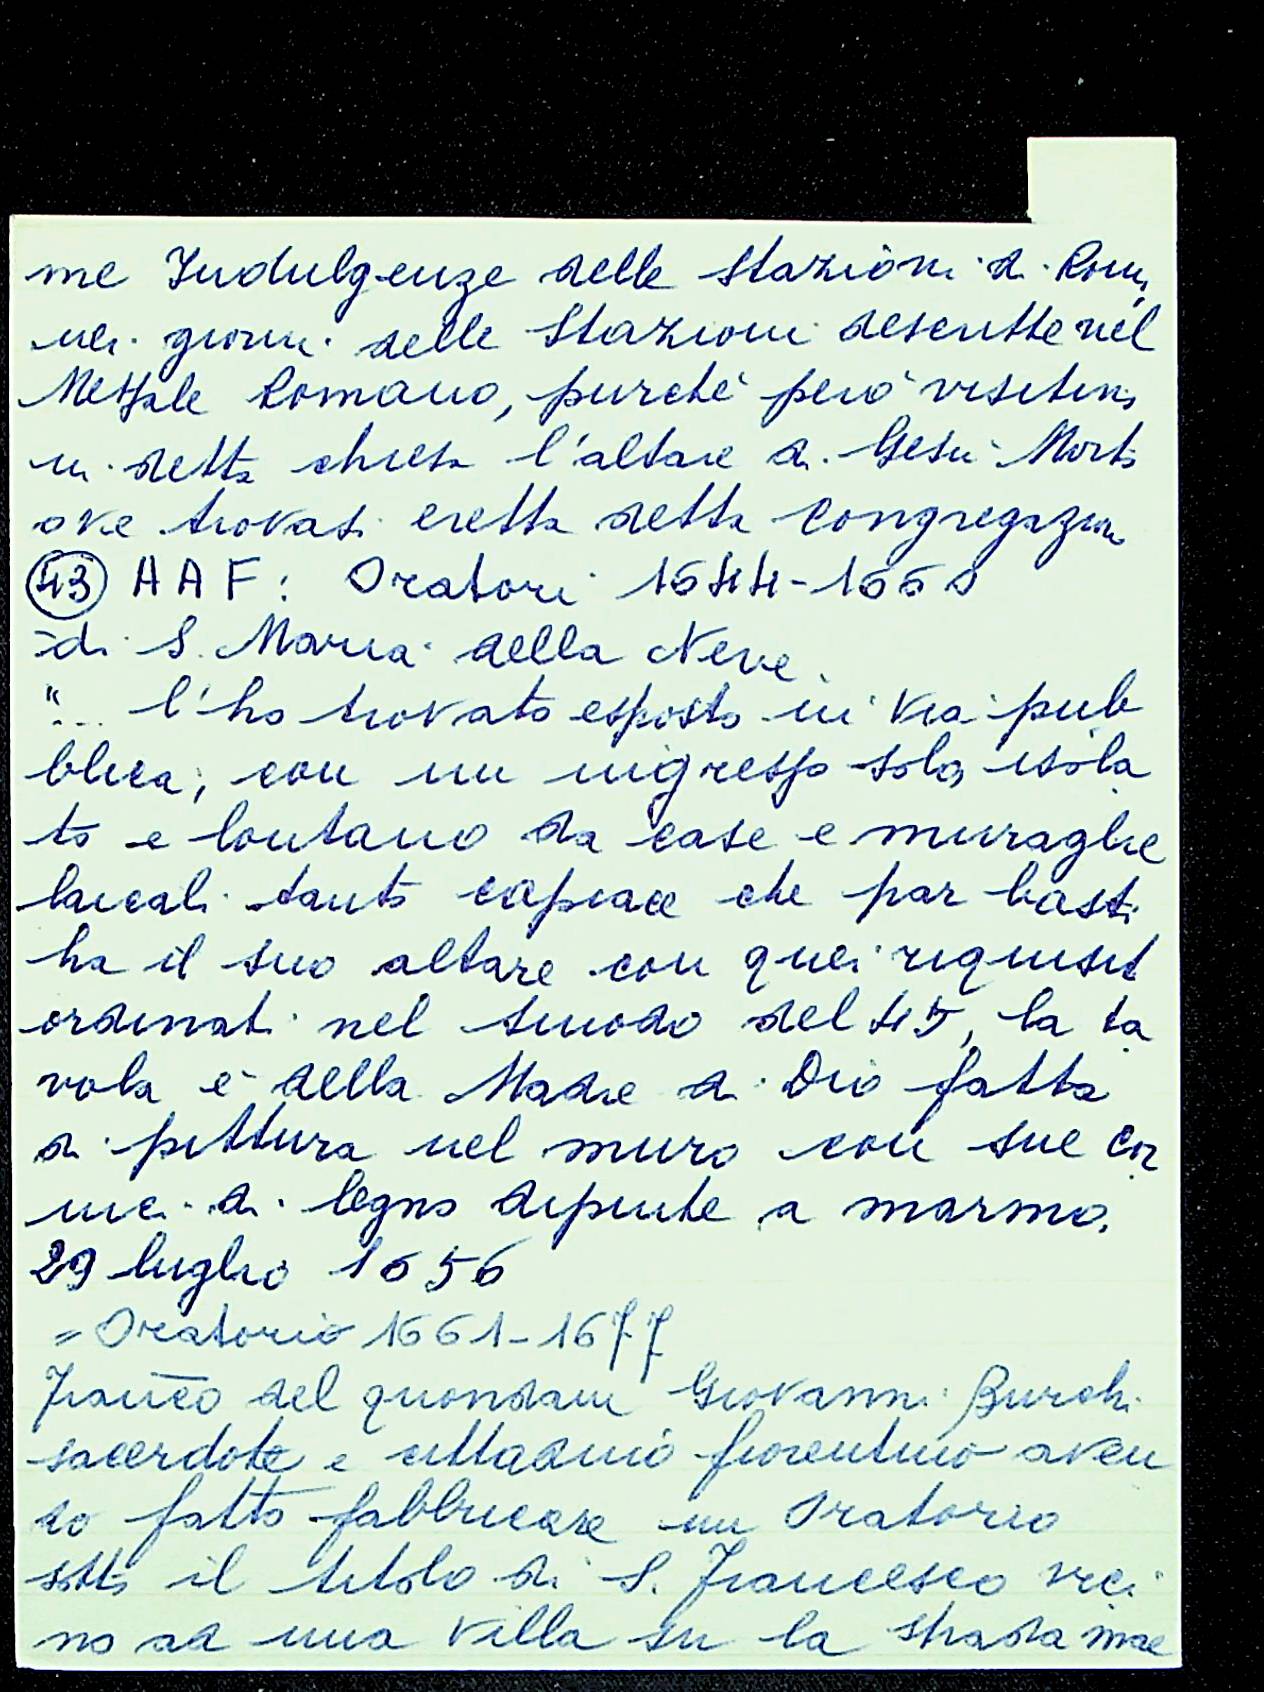 me Indulgenze delle Stazioni di Roma
nei giorni delle Stazioni descritte nel
Messale Romano, purché però visitino
in detta chiesa l'altare di Gesù Morto
ove trovasi eretta detta Congregazione
(43) A A F: Oratori 1644-1660
= di S. Maria della Neve.
"... l'ho trovato esposto in via pub
blica, con un ingresso solo, isola
to e lontano da case e muraglie
laicali tanto capace che par basti
ha il suo altare con quei requisit
ordinati nel Sinodo del 45, la ta
vola è della Madre di Dio fatta
di pittura nel muro con sue cor
nici di legno dipinte a marmo.
29 luglio 1656
= Oratorio 1661-1677
Franco del quondam Giovanni Burchi
sacerdote e cittadino fiorentino aven
do fatto fabbricare un Oratorio
sotto il titolo di S. Francesco vici
no ad una villa su la strada mae